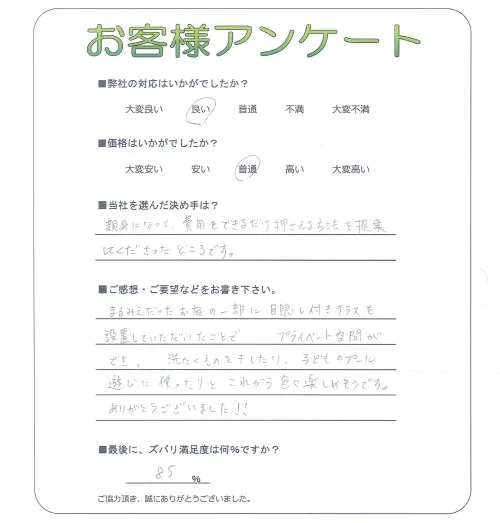 お客様アンケート
■弊社の対応はいかがでしたか？
大変良い 良い 普通 不満 大変不満
■価格はいかがでしたか？
大変安い 安い 普通 高い 大変高い
■当社を選んだ決め手は？
親身になって、費用をできるだけ押さえる方法を提案
してくださったところです。
■ご感想・ご要望などをお書き下さい。
まるみえだったお庭の一部に目隠し付きテラスを
設置していただいたことで プライベート空間が
でき、 洗たくものを干したり、子どものプール
遊びに使ったりと これから色々楽しめそうです。
ありがとうございました!!
■最後に、ズバリ満足度は何％ですか？
85 %
ご協力頂き、誠にありがとうございました。